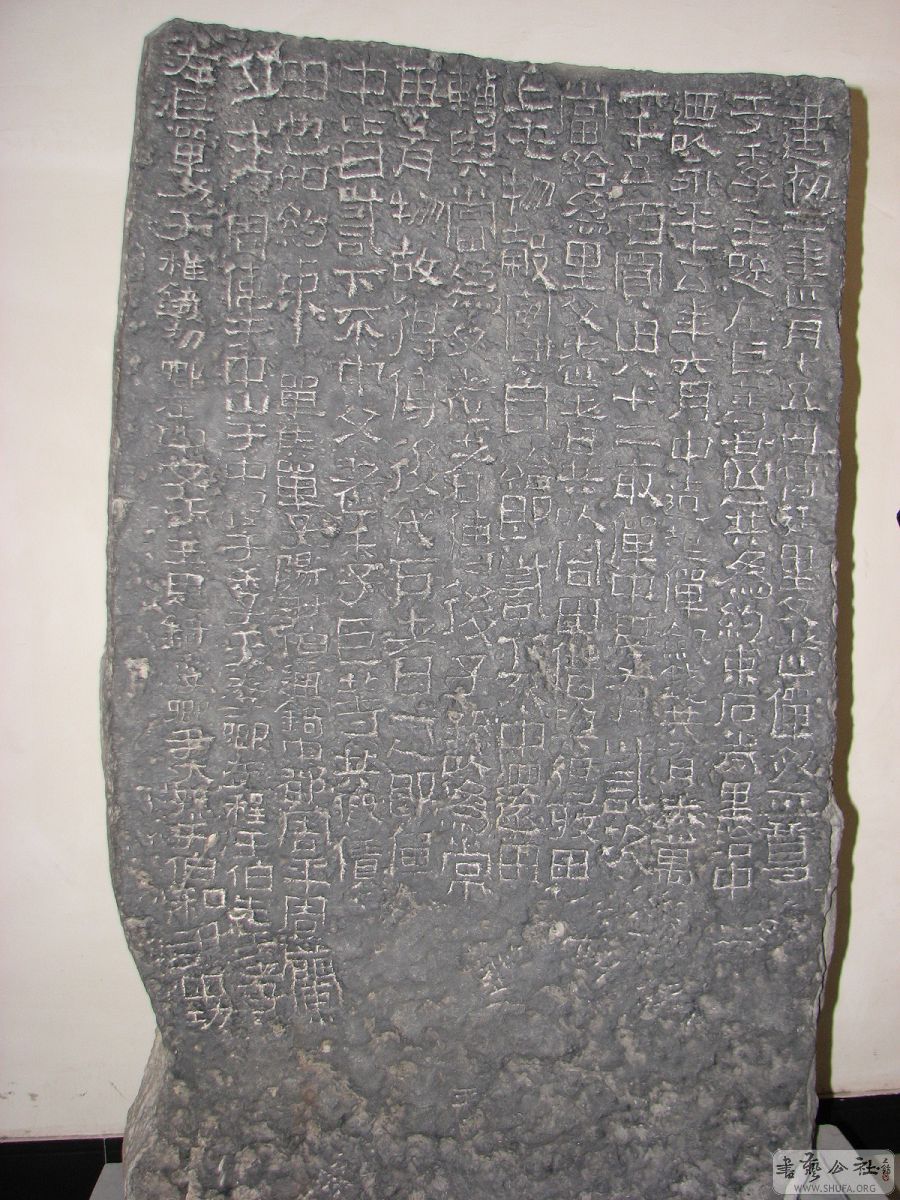 建初二年正月十五日侍廷里父老僤祭尊
于季主疏左巨等廿五人共為約束石券里治中
迺以永平十五年六月中造起僤斂錢共有六萬
一千五百買田八十二畝僤中其有訾次
當給為里父老者共以客田借與得收田
上毛物穀實自給即訾下不中還田
轉與當為父老者傳後子孫以為常
其有物故得傳後代戶者一人即僤
中皆訾下不中父老季巨等共假賃
田它如約束單侯單子陽尹伯通錡中都周平周蘭
周偉于中山于中程于季于孝卿于程于伯先于孝
左巨單力于稚錡初卿左中文于王思錡季卿尹太孫于伯和尹明功
書藝公社
WWW.SHUFA.ORG